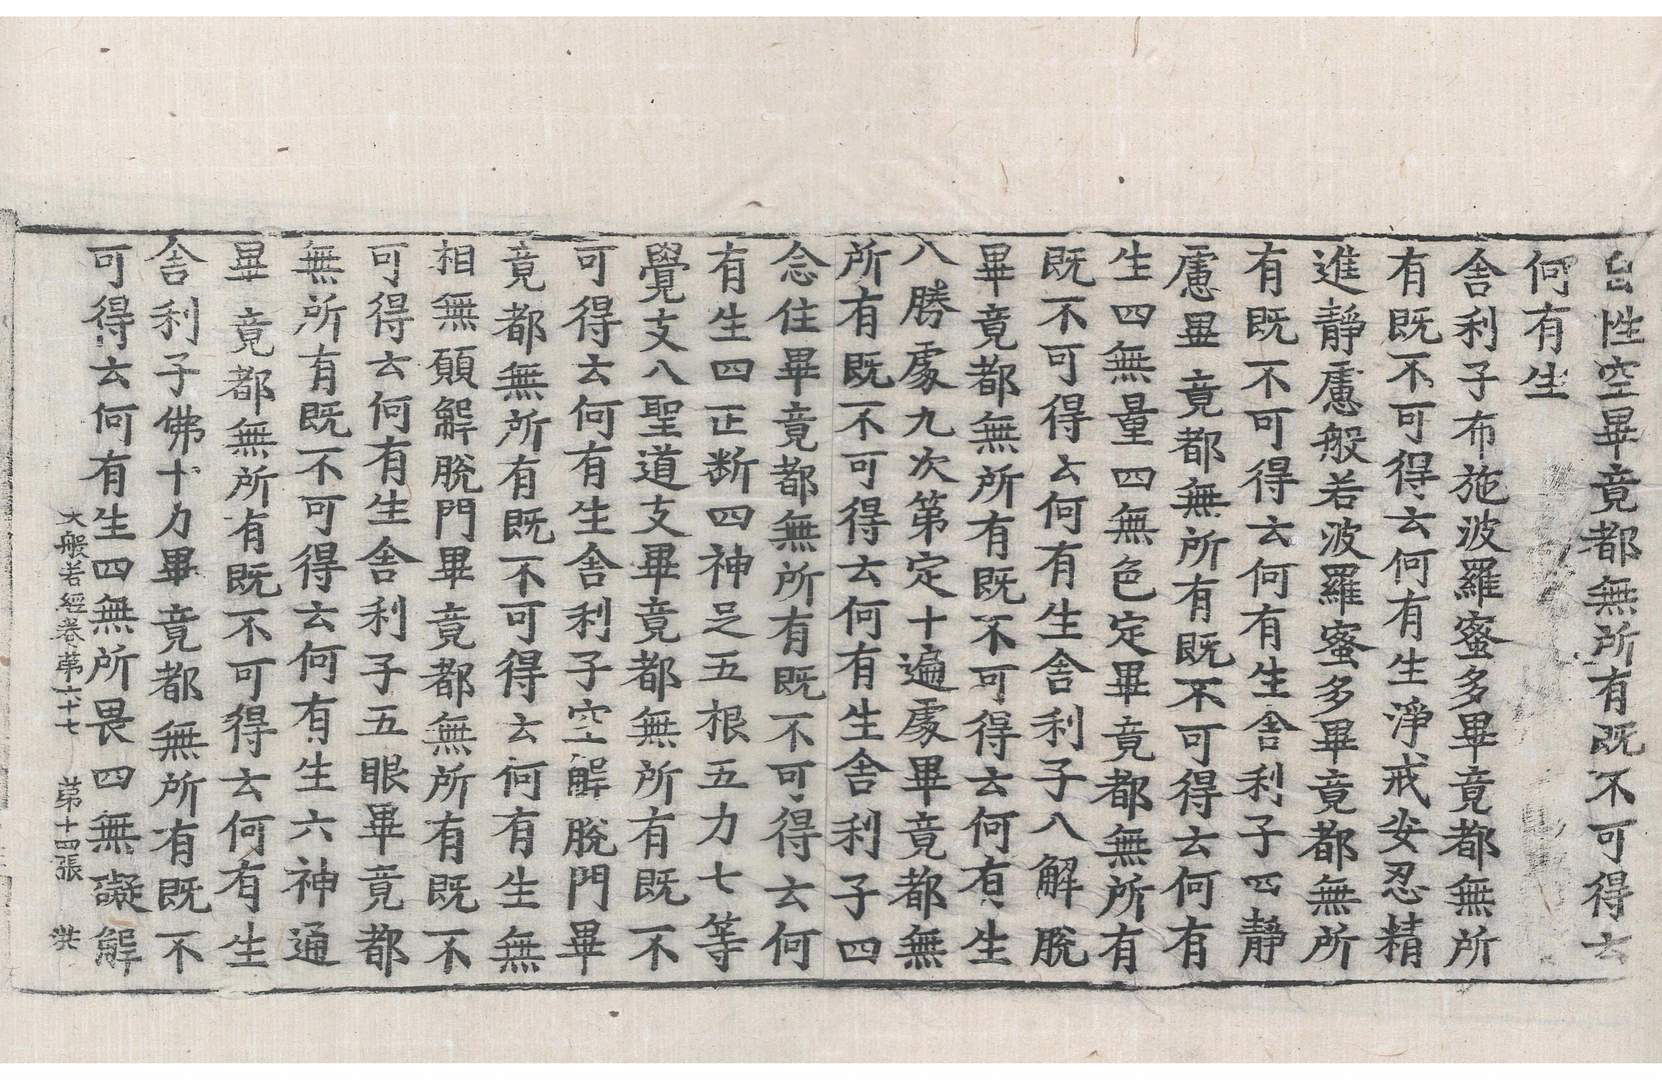 自性空畢竟都無所有既不可得云
何有生
舍利子布施波羅蜜多畢竟都無所
有既不可得云何有生淨戒安忍精
進靜慮般若波羅蜜多畢竟都無所
有既不可得云何有生舍利子四靜
慮畢竟都無所有既不可得云何有
生四無量四無色定畢竟都無所有
既不可得云何有生舍利子八解脫
畢竟都無所有既不可得云何有生
八勝處九次第定十遍處畢竟都無
所有既不可得云何有生舍利子四
念住畢竟都無所有既不可得云何
有生四正断四神足五根五力七等
覺支八聖道支畢竟都無所有既不
可得云何有生舍利子空解脫門畢
竟都無所有既不可得云何有生無
相無願解脫門畢竟都無所有既不
可得云何有生舍利子五眼畢竟都
無所有既不可得云何有生六神通
畢竟都無所有既不可得云何有生
舍利子佛十力畢竟都無所有既不
可得云何有生四無所畏四無礙解
大般若經卷第六十七 第十四張 洪